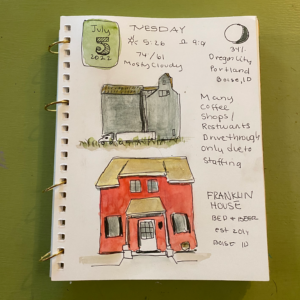 July
TUESDAY
5
2022
74/61
Mostly Cloudy
34%
Oregon City
Portland
Boise, ID
Many
Coffee
Shops/
Restaurants
Drive through
only due to
Staffing
FRANKLIN
HOUSE
BED + BEER
EST 2011
BOISE ID